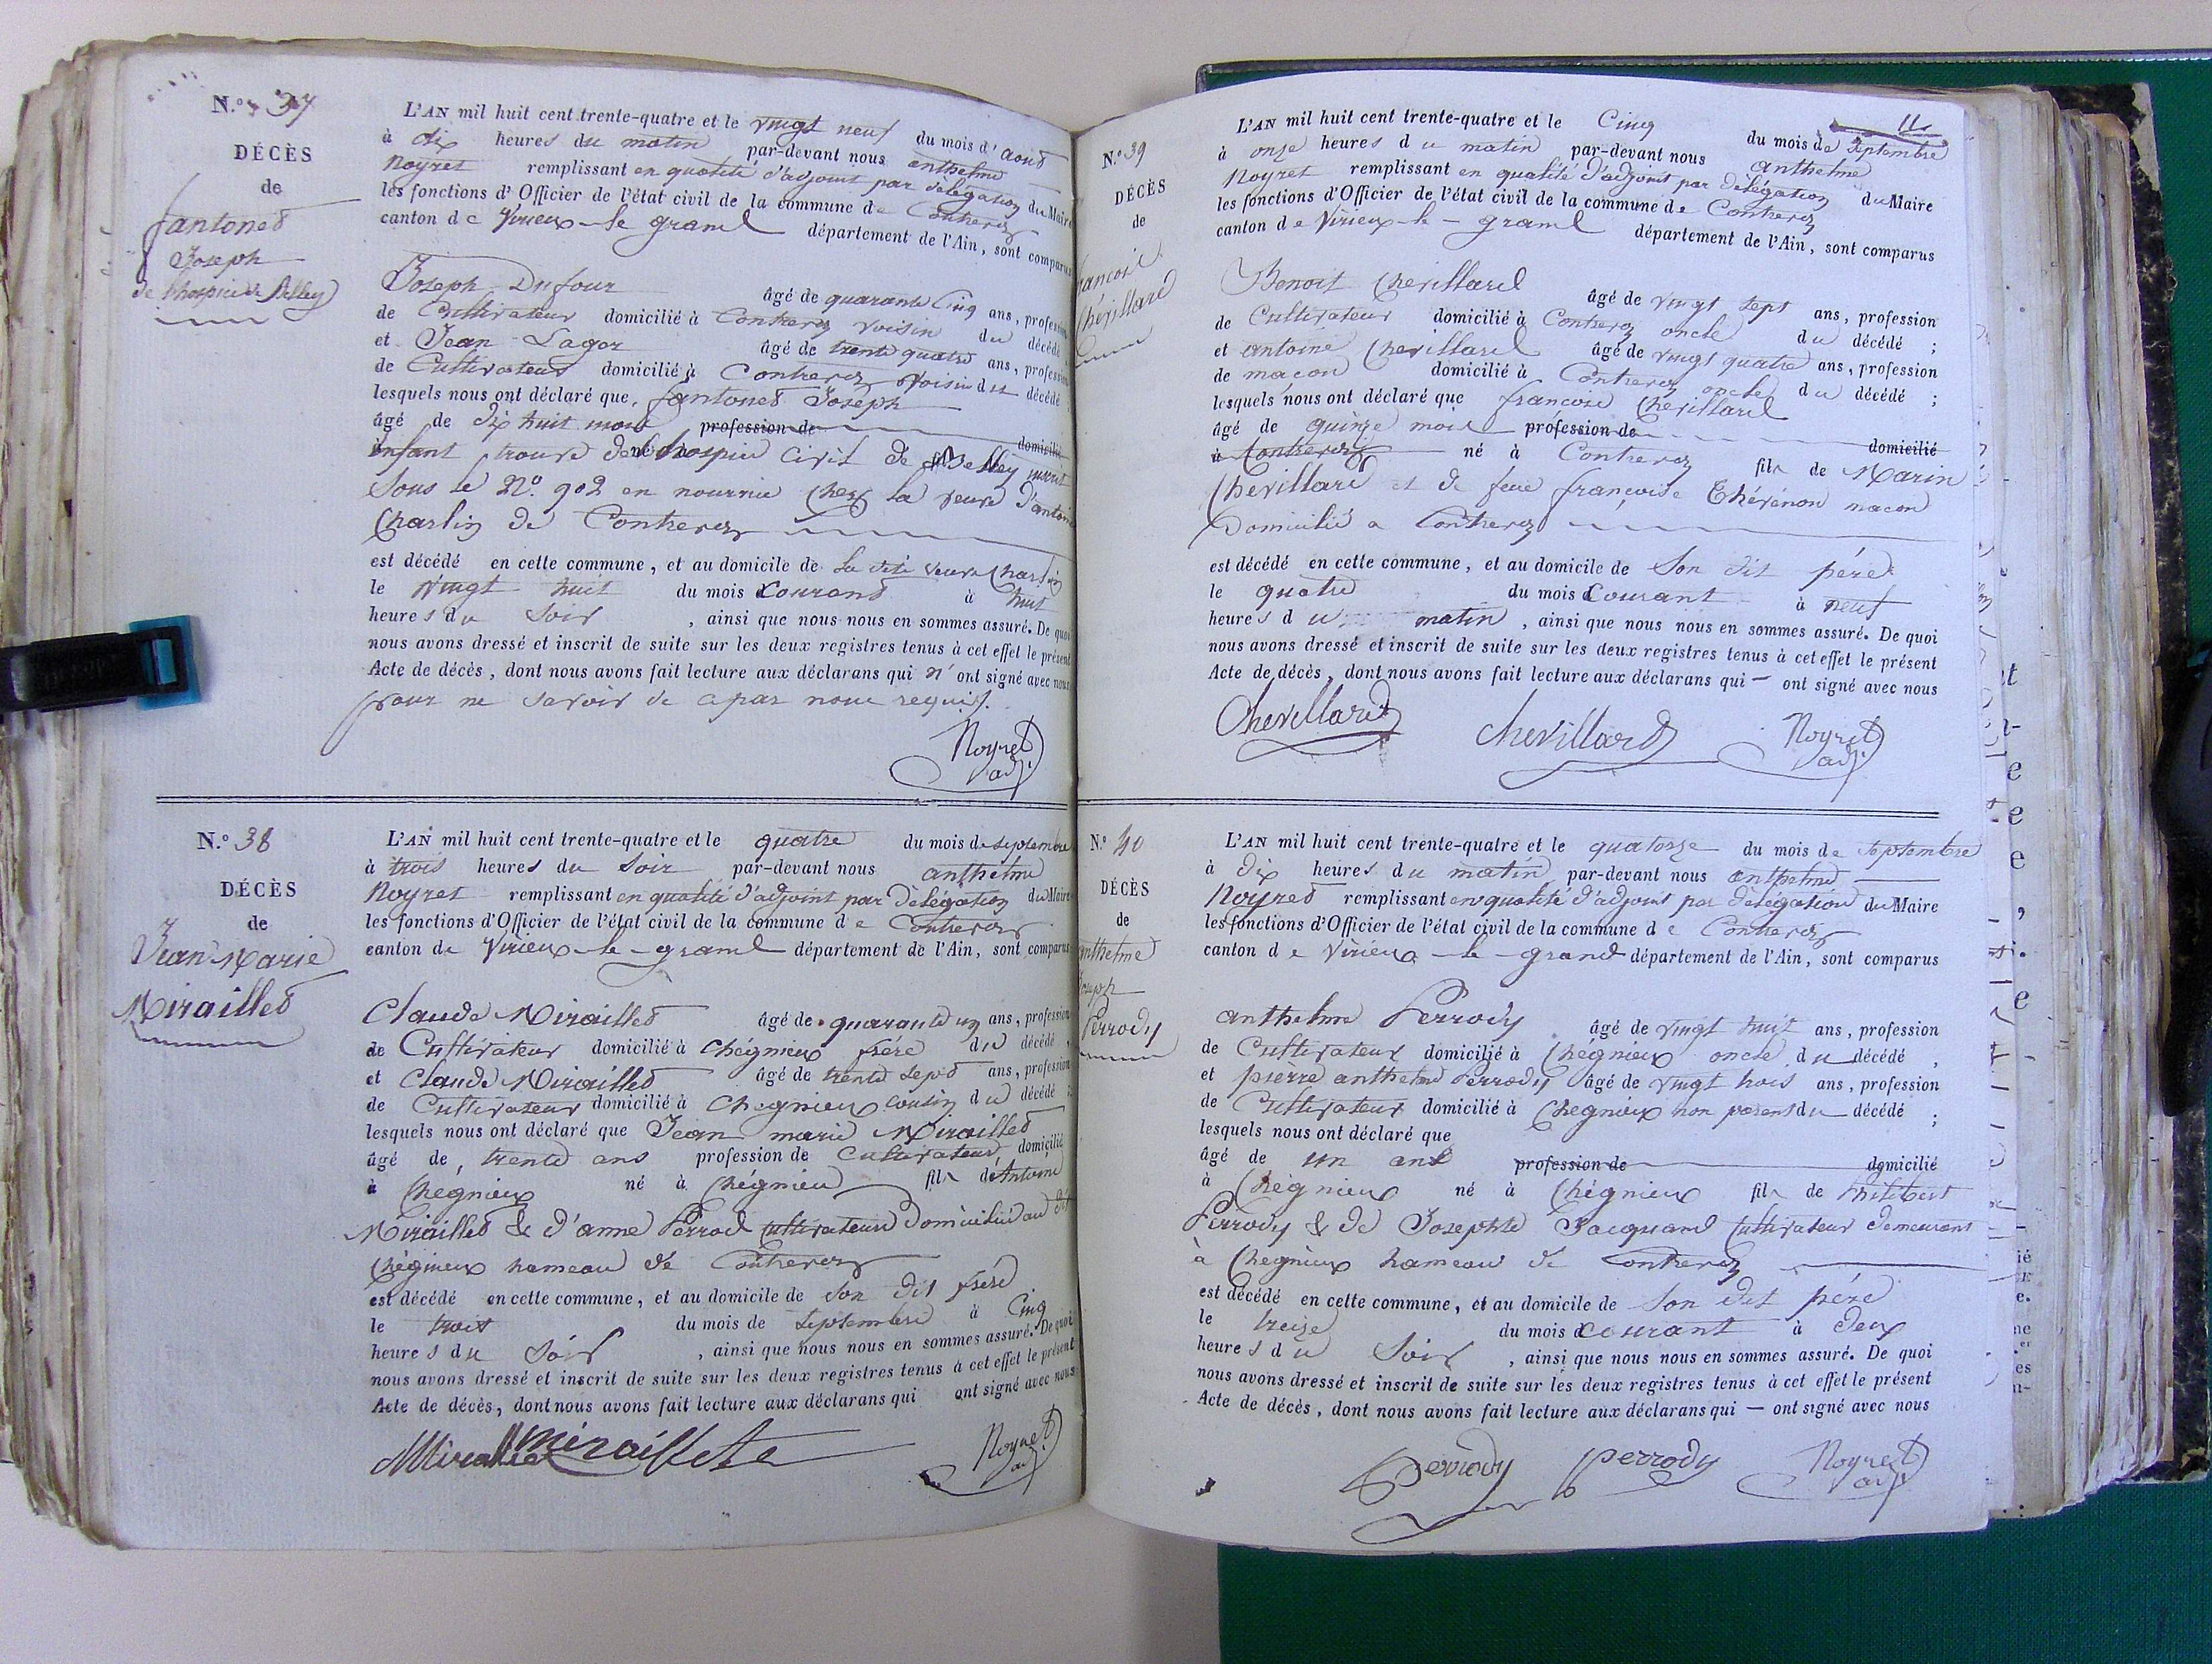 N.º 37
DÉCÈS
de
fantoned
Joseph
de l'hospice de Belley
L'AN mil huit cent trente-quatre et le vingt neuf du mois d'aoud
à dix heures du matin par-devant nous anthelme
Noyret remplissant en qualité d'adjoint par délégation du Maire
les fonctions d'Officier de l'état civil de la commune de Contrevoz
canton de Virieux-le-grand département de l'Ain, sont comparus
Joseph Dufour âgé de quarante Cinq ans, profession
de Cultivateur domicilié à Contrevoz voisin du décédé
et Jean Lagor âgé de trente quatre ans, profession
de Cultivateur domicilié à Contrevoz voisin du décédé
lesquels nous ont déclaré que fantoned Joseph
âgé de dix huit mois profession de domicilié
Enfant trouvé de l'hospice Civil de Belley inscrit
Sous le N.º 902 en nourrice Chez la veuve d'antoine
Charlin de Contrevoz
est décédé en cette commune, et au domicile de la dite veuve Charlin
le vingt huit du mois Courand à huit
heures du Soir , ainsi que nous nous en sommes assuré. De quoi
nous avons dressé et inscrit de suite sur les deux registres tenus à cet effet le présent
Acte de décès, dont nous avons fait lecture aux déclarans qui n'ont signé avec nous
pour ne savoir de ce par nous requis.
Noyret
adj.
N.º 38
DÉCÈS
de
Jean Marie
Mirailled
L'AN mil huit cent trente-quatre et le quatre du mois de septembre
à trois heures du Soir par-devant nous anthelme
Noyret remplissant en qualité d'adjoint par délégation du Maire
les fonctions d'Officier de l'état civil de la commune de Contrevoz
canton de Virieux-le-grand département de l'Ain, sont comparus
Claude Mirailled âgé de quarante un ans, profession
de Cultivateur domicilié à Chégnieux frére du décédé
et Claude Mirailled âgé de trente sept ans, profession
de Cultivateur domicilié à Chegnieux cousin du décédé ;
lesquels nous ont déclaré que Jean marie Mirailled
âgé de trente ans profession de Cultivateur domicilié
à Chegnieux né à Chégnieu fils de Antoine
Mirailled & d'anne Perrod Cultivateurs domiciliés au dit
Chégnieux hameau de Contrevoz
est décédé en cette commune, et au domicile de son dit frére
le trois du mois de Septembre à Cinq
heures du Soir , ainsi que nous nous en sommes assuré. De quoi
nous avons dressé et inscrit de suite sur les deux registres tenus à cet effet le présent
Acte de décès, dont nous avons fait lecture aux déclarans qui ont signé avec nous
Noyret
adj.
11
N.º 39
DÉCÈS
de
francois
Chévillard
L'AN mil huit cent trente-quatre et le Cinq du mois de Septembre
à onze heures du matin par-devant nous anthelme
Noyret remplissant en qualité d'adjoint par délégation du Maire
les fonctions d'Officier de l'état civil de la commune de Contrevoz
canton de Virieux-le-grand département de l'Ain, sont comparus
Benoit Chevillard âgé de vingt sept ans, profession
de Cultivateur domicilié à Contrevoz oncle du décédé ;
et antoine Chevillard âgé de vingt quatre ans, profession
de macon domicilié à Contrevoz oncle du décédé ;
lesquels nous ont déclaré que francois Chevillard
âgé de quinze mois profession de domicilié
à Contrevoz né à Contrevoz fils de Marin
Chevillard et de feue françoise Thévenon macon
Domicilié a Contrevoz
est décédé en cette commune, et au domicile de Son dit pére
le quatre du mois Courant à neuf
heures du matin , ainsi que nous nous en sommes assuré. De quoi
nous avons dressé et inscrit de suite sur les deux registres tenus à cet effet le présent
Acte de décès, dont nous avons fait lecture aux déclarans qui — ont signé avec nous
Chevillard chevillard Noyret
adj.
N.º 40
DÉCÈS
de
anthelme
Joseph
Perrody
L'AN mil huit cent trente-quatre et le quatorze du mois de Septembre
à dix heures du matin par-devant nous anthelme
Noyred remplissant en qualité d'adjoint par délégation du Maire
les fonctions d'Officier de l'état civil de la commune de Contrevoz
canton de Virieux-le-grand département de l'Ain, sont comparus
anthelme Perrody âgé de vingt huit ans, profession
de Cultivateur domicilié à Chégnieux oncle du décédé ,
et pierre anthelme Perrody âgé de vingt trois ans, profession
de Cultivateur domicilié à Chegnieux non parent du décédé ;
lesquels nous ont déclaré que
âgé de un ans profession de domicilié
à Chégnieux né à Chégnieux fils de Philibert
Perrody & de Josephte Jacquand Cultivateur demeurant
à Chegnieux hameau de Contrevoz
est décédé en cette commune, et au domicile de Son dit pére
le treize du mois courant à deux
heures du Soir , ainsi que nous nous en sommes assuré. De quoi
nous avons dressé et inscrit de suite sur les deux registres tenus à cet effet le présent
Acte de décès, dont nous avons fait lecture aux déclarans qui — ont signé avec nous
Perrody perrody Noyret
adj.